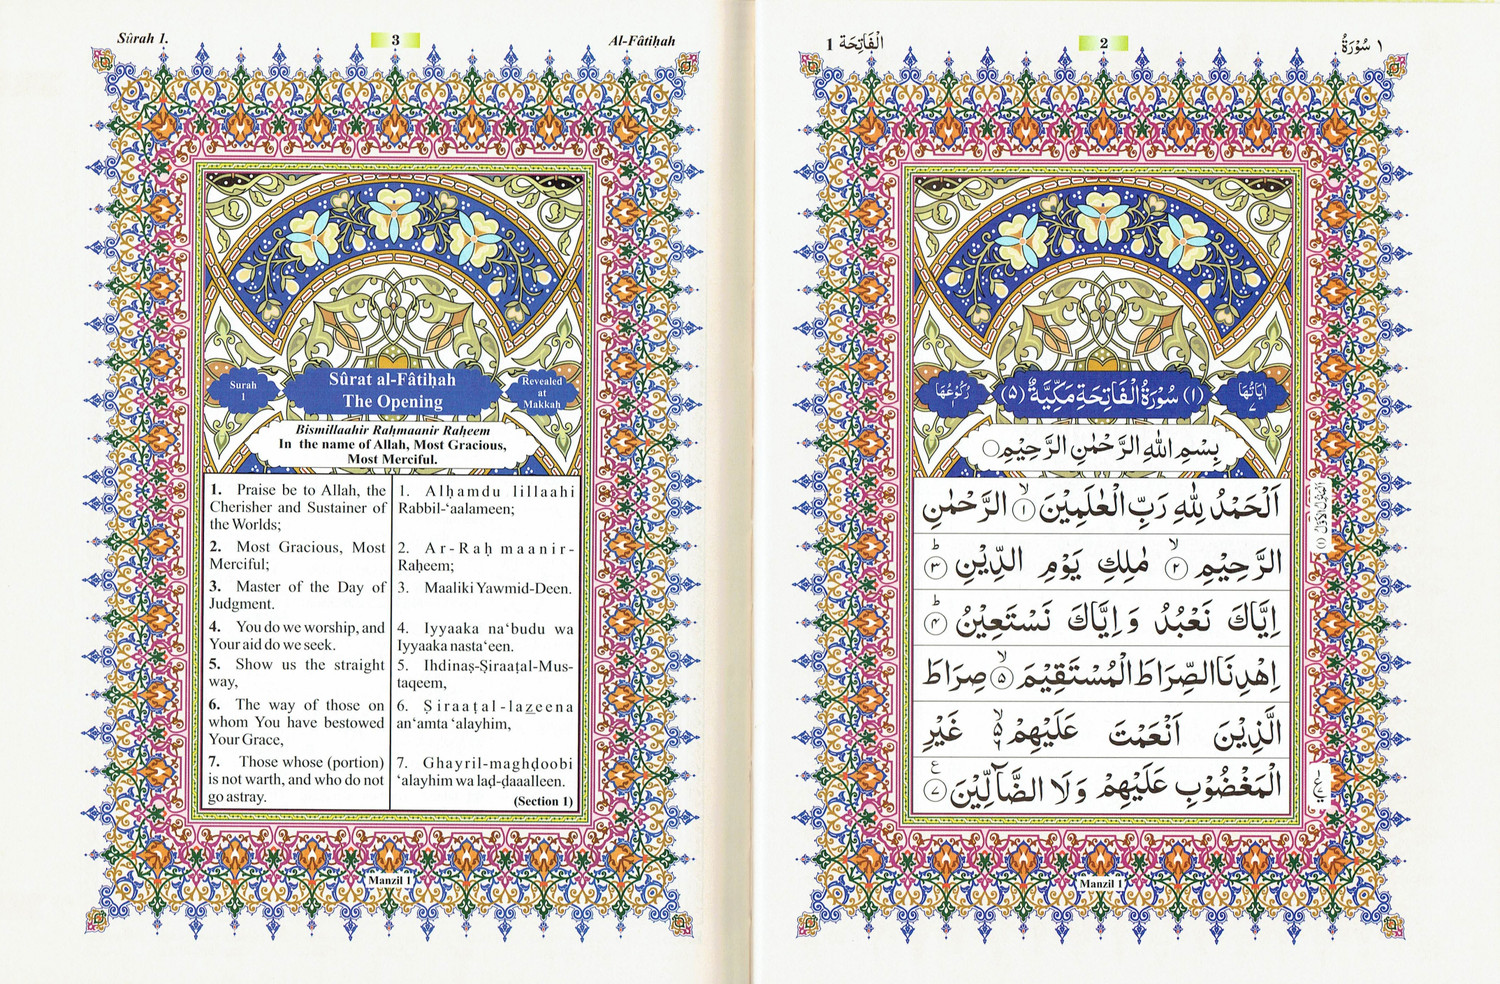 Sûrah 1.
3
Al-Fâtiḥah
Surah
1
Sûrat al-Fâtiḥah
The Opening
Revealed
at
Makkah
Bismillaahir Raḥmaanir Raḥeem
In the name of Allah, Most Gracious,
Most Merciful.
1. Praise be to Allah, the
Cherisher and Sustainer of
the Worlds;
2. Most Gracious, Most
Merciful;
3. Master of the Day of
Judgment.
4. You do we worship, and
Your aid do we seek.
5. Show us the straight
way,
6. The way of those on
whom You have bestowed
Your Grace,
7. Those whose (portion)
is not warth, and who do not
go astray.
1. Alḥamdu lillaahi
Rabbil-‘aalameen;
2. Ar-Raḥmaanir-
Raḥeem;
3. Maaliki Yawmid-Deen.
4. Iyyaaka na‘budu wa
Iyyaaka nasta‘een.
5. Ihdinaṣ-Ṣiraaṭal-Mus-
taqeem,
6. Ṣiraaṭal-lazeena
an‘amta ‘alayhim,
7. Ghayril-maghḍoobi
‘alayhim wa laḍ-ḍaaalleen.
(Section 1)
Manzil 1
١ سُوْرَةُ
2
الْفَاتِحَة 1
اٰيَاتُهَا
٧
(١) سُوْرَةُ الْفَاتِحَةِ مَكِّيَّةٌ (٥)
رُكُوْعُهَا
١
بِسْمِ اللّٰهِ الرَّحْمٰنِ الرَّحِيْمِ
اَلْحَمْدُ لِلّٰهِ رَبِّ الْعٰلَمِيْنَ ۙ‏ ١ الرَّحْمٰنِ
الرَّحِيْمِ ۙ‏ ٢ مٰلِكِ يَوْمِ الدِّيْنِ ؕ‏ ٣
اِيَّاكَ نَعْبُدُ وَ اِيَّاكَ نَسْتَعِيْنُ ؕ‏ ۴
اِهْدِنَا الصِّرَاطَ الْمُسْتَقِيْمَ ۙ‏ ۵ صِرَاطَ
الَّذِيْنَ اَنْعَمْتَ عَلَيْهِمْ ۙ۬ ٦ غَيْرِ
الْمَغْضُوْبِ عَلَيْهِمْ وَلَا الضَّآلِّيْنَ ٧ ع
اَلْمَنْزِلُ الْاَوَّلُ (١)
Manzil 1